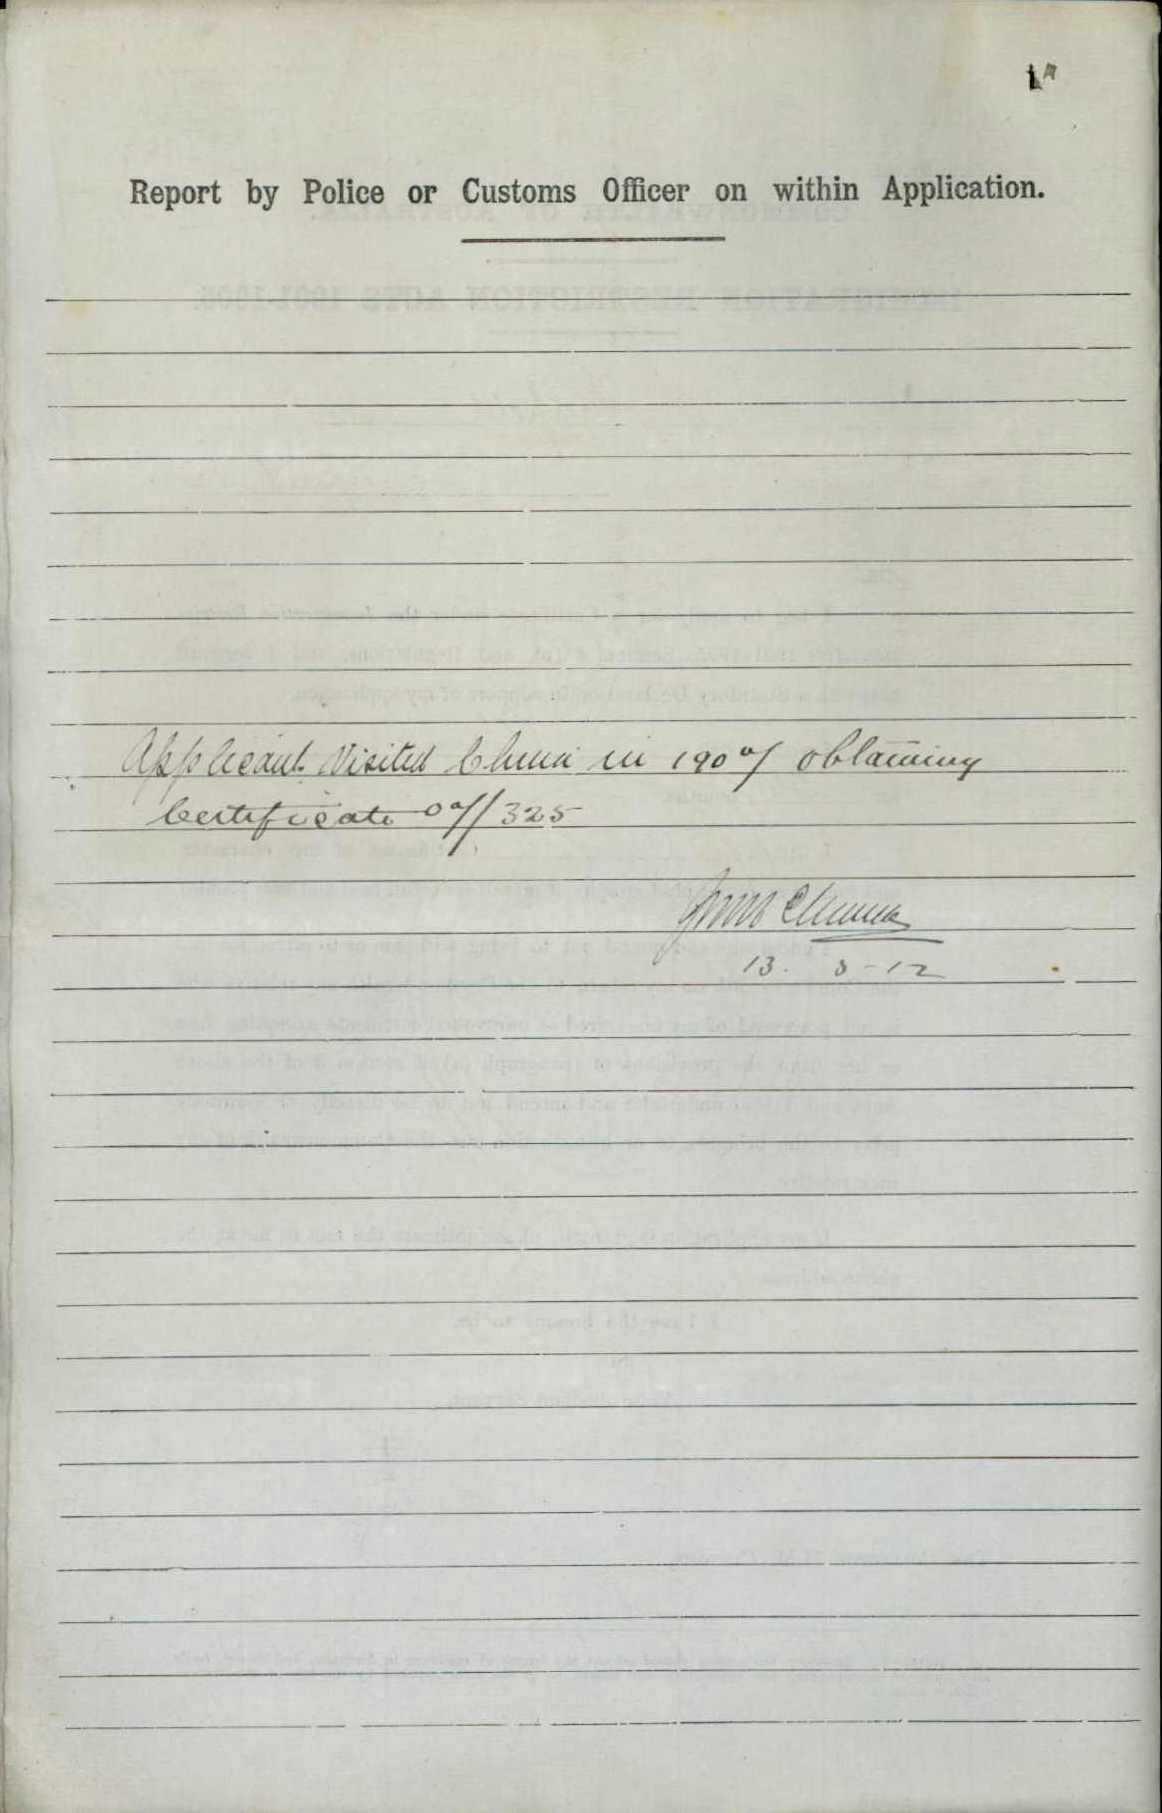 Report by Police or Customs Officer on within Application.
Applicant Visited China in 1907 obtaining
Certificate 07/325
13. 3-12